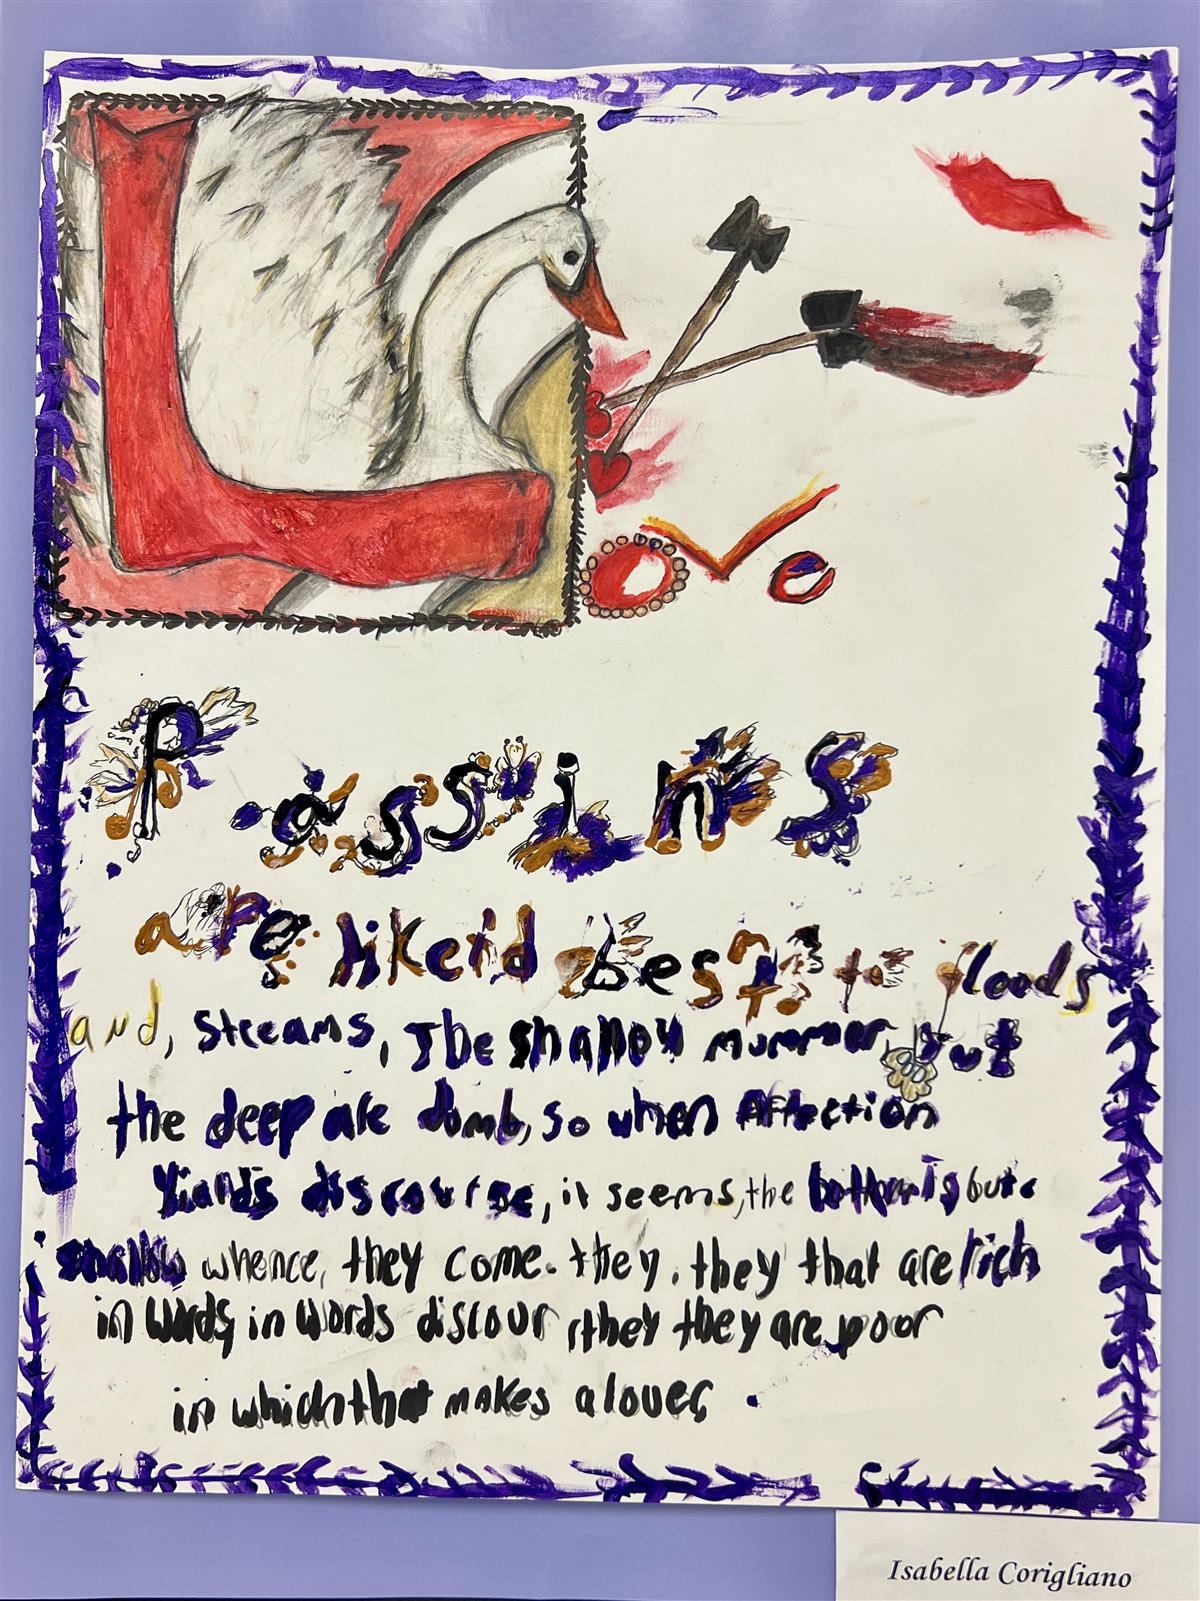 Love
Passins
are likeid best to floods
and, streams, The shallow murmmer, but
the deep are domb, so when Affection
Yialds discourse, it seems, the bottom is but a
shallow whence, they come. they. they that are rich
in words, in words discour, they they are poor
in which that makes a lover,.
Isabella Corigliano